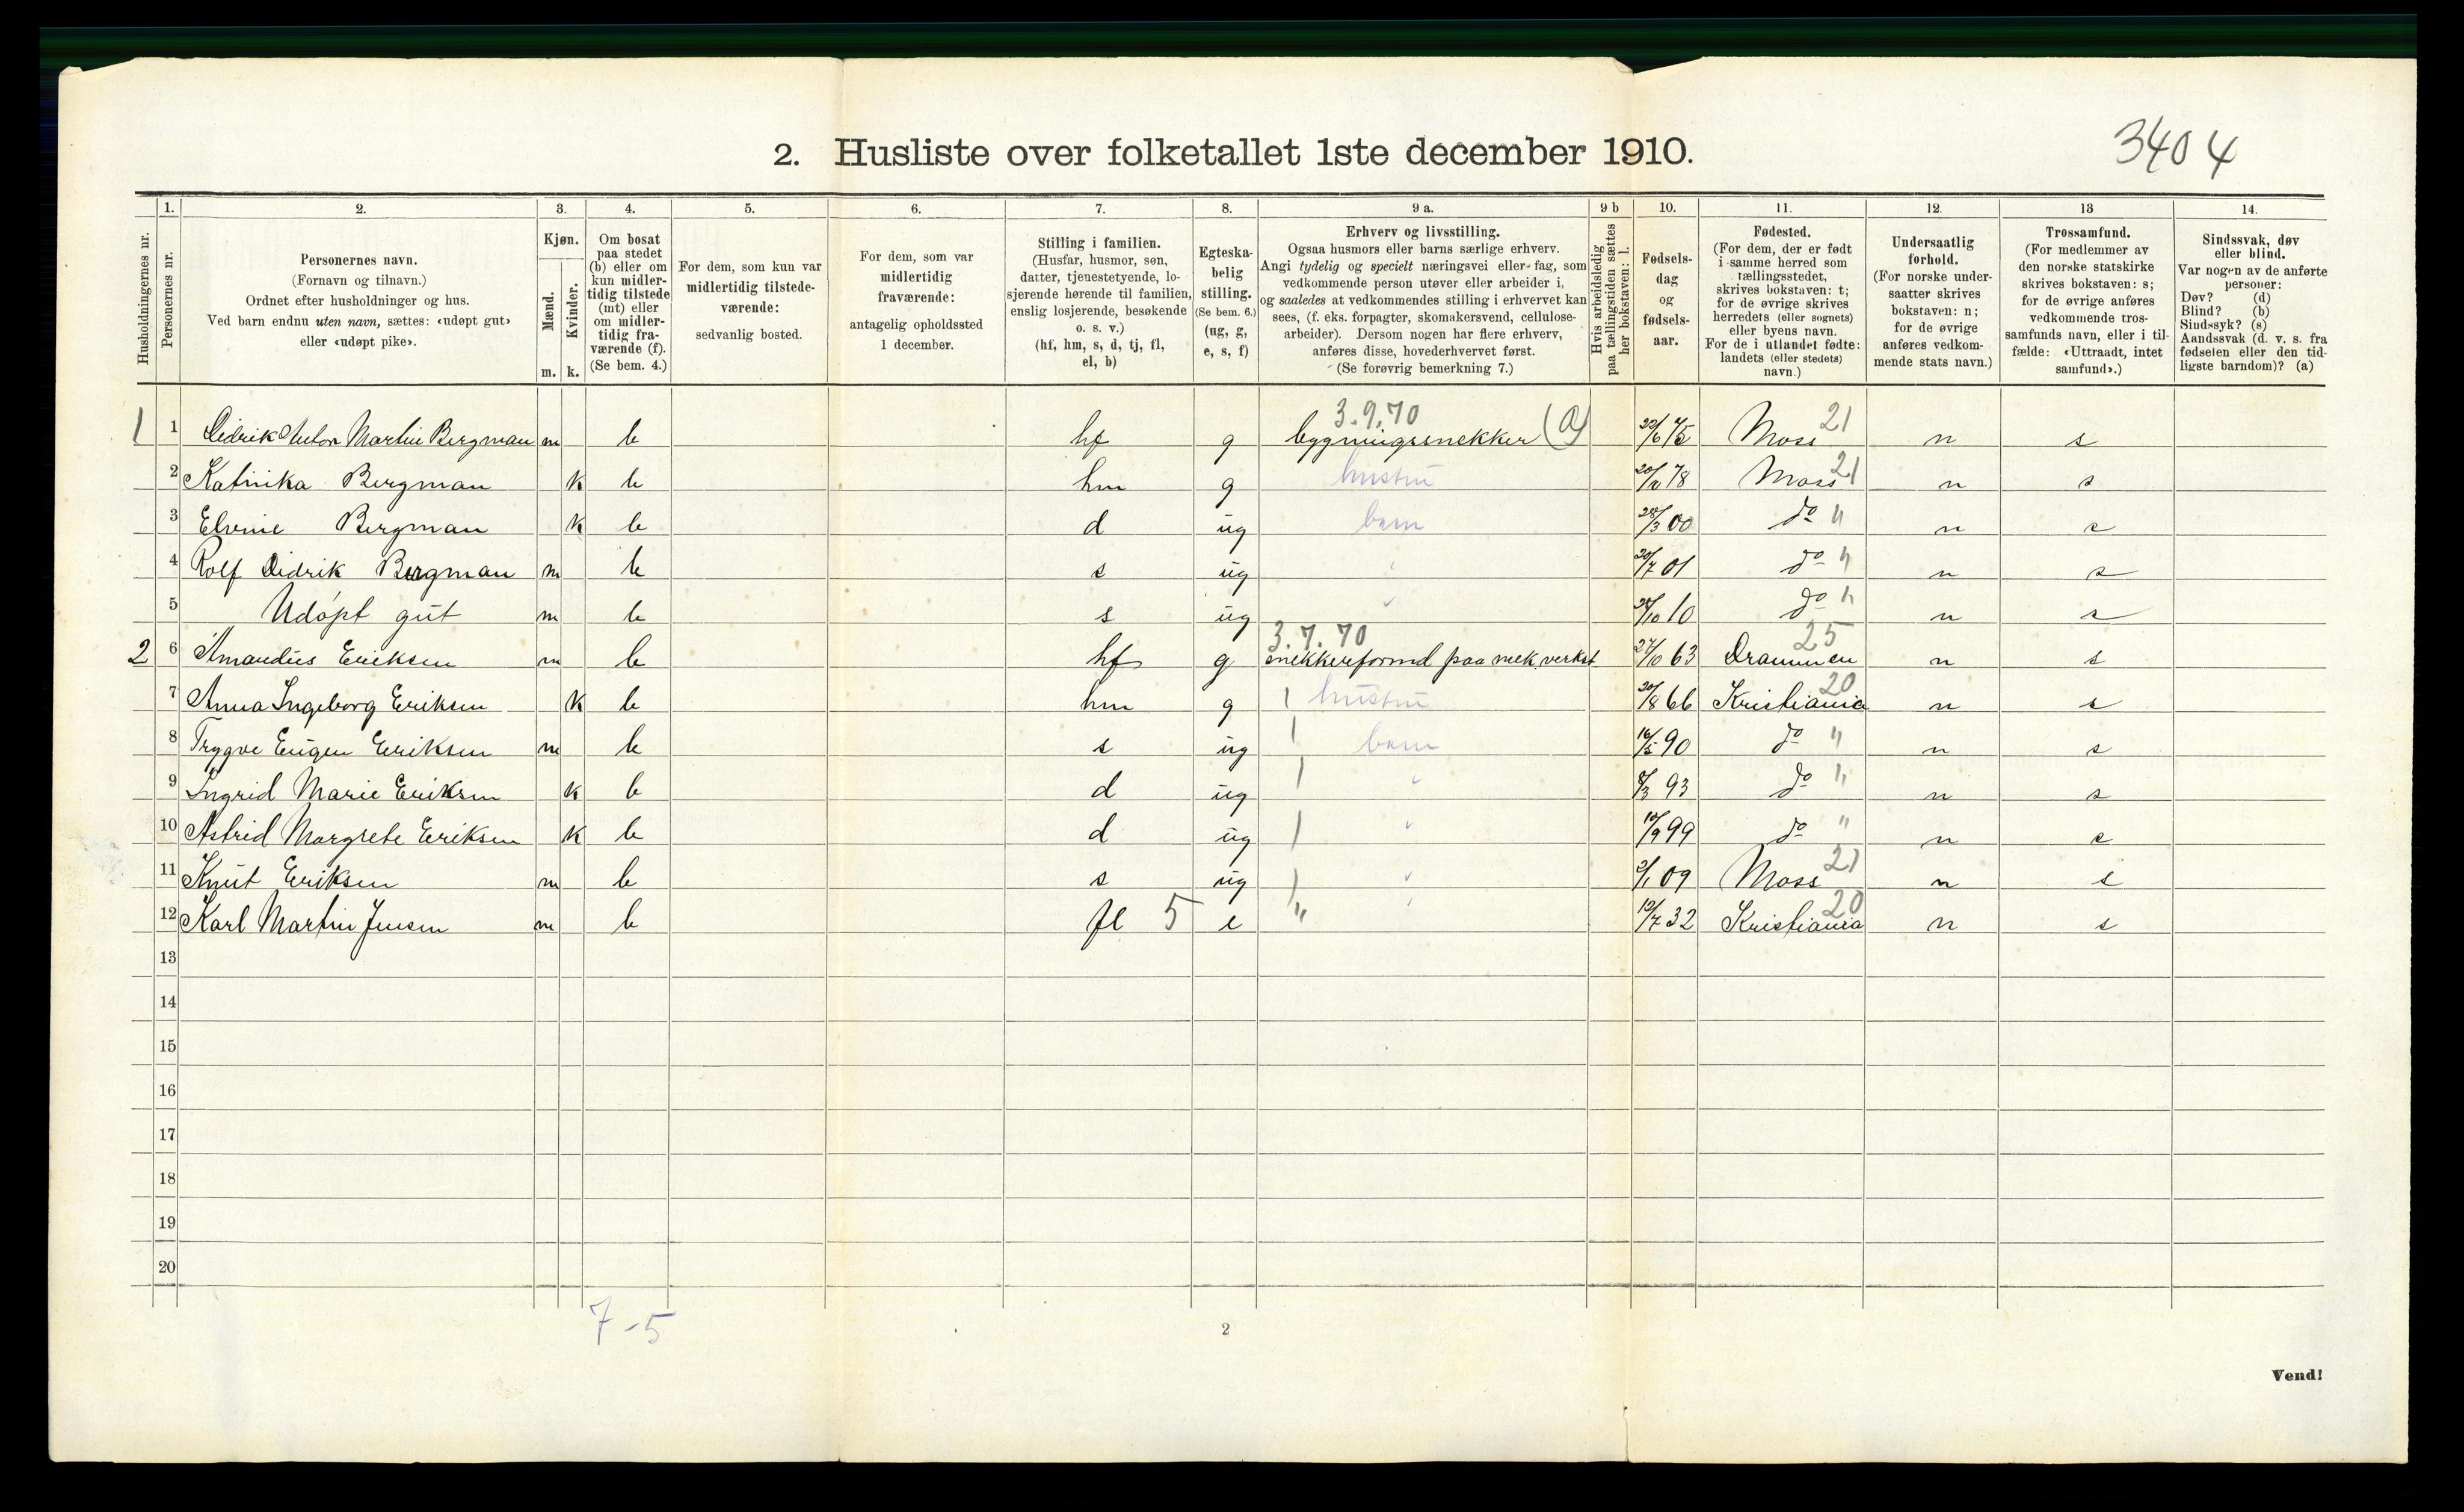 3404
2. Husliste over folketallet 1ste december 1910.
1. 2. 3. 4. 5. 6. 7. 8. 9 a. 9 b 10. 11. 12. 13 14.
Husholdningernes nr.
Personernes nr.
Personernes navn.
(Fornavn og tilnavn.)
Ordnet efter husholdninger og hus.
Ved barn endnu uten navn, sættes: «udøpt gut»
eller «udøpt pike».
Kjøn.
Mænd.
Kvinder.
m. k.
Om bosat
paa stedet
(b) eller om
kun midler-
tidig tilstede
(mt) eller
om midler-
tidig fra-
værende (f).
(Se bem. 4.)
For dem, som kun var
midlertidig tilstede-
værende:
sedvanlig bosted.
For dem, som var
midlertidig
fraværende:
antagelig opholdssted
1 december.
Stilling i familien.
(Husfar, husmor, søn,
datter, tjenestetyende, lo-
sjerende hørende til familien,
enslig losjerende, besøkende
o. s. v.)
(hf, hm, s, d, tj, fl,
el, b)
Egteska-
belig
stilling.
(Se bem. 6.)
(ug, g,
e, s, f)
Erhverv og livsstilling.
Ogsaa husmors eller barns særlige erhverv.
Angi tydelig og specielt næringsvei eller fag, som
vedkommende person utøver eller arbeider i,
og saaledes at vedkommendes stilling i erhvervet kan
sees, (f. eks. forpagter, skomakersvend, cellulose-
arbeider). Dersom nogen har flere erhverv,
anføres disse, hovederhvervet først.
(Se forøvrig bemerkning 7.)
Hvis arbeidsledig
paa tællingstiden sættes
her bokstaven: l.
Fødsels-
dag
og
fødsels-
aar.
Fødested.
(For dem, der er født
i samme herred som
tællingsstedet,
skrives bokstaven: t;
for de øvrige skrives
herredets (eller sognets)
eller byens navn.
For de i utlandet fødte:
landets (eller stedets)
navn.)
Undersaatlig
forhold.
(For norske under-
saatter skrives
bokstaven: n;
for de øvrige
anføres vedkom-
mende stats navn.)
Trossamfund.
(For medlemmer av
den norske statskirke
skrives bokstaven: s;
for de øvrige anføres
vedkommende tros-
samfunds navn, eller i til-
fælde: «Uttraadt, intet
samfund».)
Sindssvak, døv
eller blind.
Var nogen av de anførte
personer:
Døv? (d)
Blind? (b)
Sindssyk? (s)
Aandssvak (d. v. s. fra
fødselen eller den tid-
ligste barndom)? (a)
3.9.70 21
1 1 Didrik Anton Martin Bergman m b hf g bygningssnekker (a) 22/6 75 Moss n s
2 Katinka Bergman k b hm g hustru 20/10 78 Moss 21 n s
3 Elvine Bergman k b d ug barn 28/3 00 do " n s
4 Rolf Didrik Bergman m b s ug " 20/7 01 do " n s
5 Udøpt gut m b s ug " 28/10 10 do " n s
3.7.70 25
2 6 Amandus Eriksen m b hf g snekkerformd paa mek. verkst 27/10 63 Drammen n s
7 Anna Ingeborg Eriksen k b hm g hustru 20/8 66 Kristiania 20 n s
8 Trygve Eugen Eriksen m b s ug barn 16/5 90 do " n s
9 Ingrid Marie Eriksen k b d ug " 8/3 93 do " n s
10 Astrid Margrete Eriksen k b d ug " 10/9 99 do " n s
11 Knut Eriksen m b s ug " 2/1 09 Moss 21 n s
12 Karl Martin Jensen m b fl 5 e " 10/7 32 Kristiania 20 n s
13
14
15
16
17
18
19
20
7-5
2
Vend!